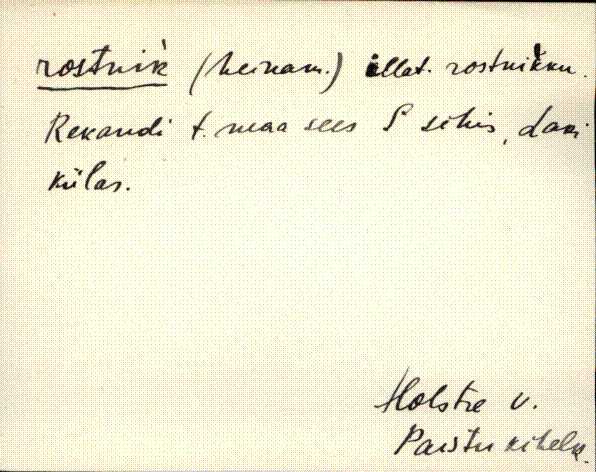 rostnik̀ (heinam.) illat. rostnik̀ku.
Rekandi t. maa sees S sihis, Lavi
külas.
Holstre v.
Paistu kihelk.